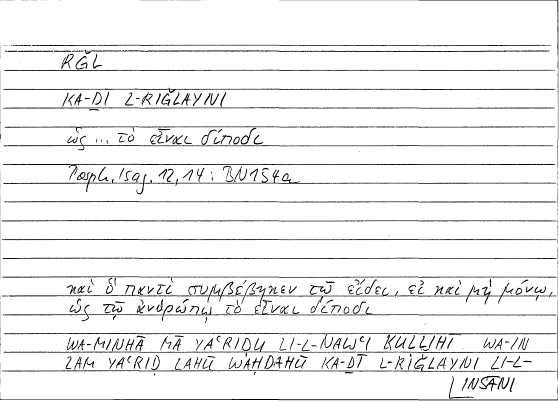 RǦL
KA-ḎĪ L-RIǦLAYNI
ὡς ... τὸ εἶναι δίποδι
Porph. Isag. 12, 14 : BN154a
καὶ ὃ παντὶ συμβέβηκεν τῷ εἴδει, εἰ καὶ μὴ μόνῳ,
ὡς τῷ ἀνθρώπῳ τὸ εἶναι δίποδι
WA-MINHĀ MĀ YAʿRIḌU LI-L-NAWʿI KULLIHĪ WA-IN
LAM YAʿRIḌ LAHŪ WAḤDAHŪ KA-ḎĪ L-RIǦLAYNI LI-L-
INSĀNI